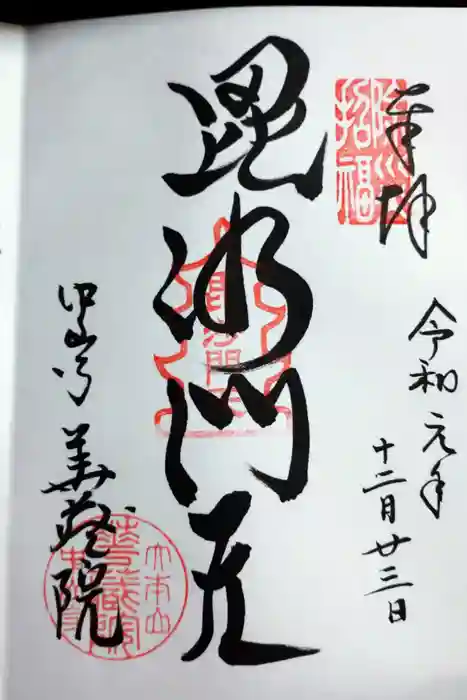 奉拝
除災招福
令和元年
十二月廿三日
毘沙門天
中山寺
華蔵院
大本山
華蔵院